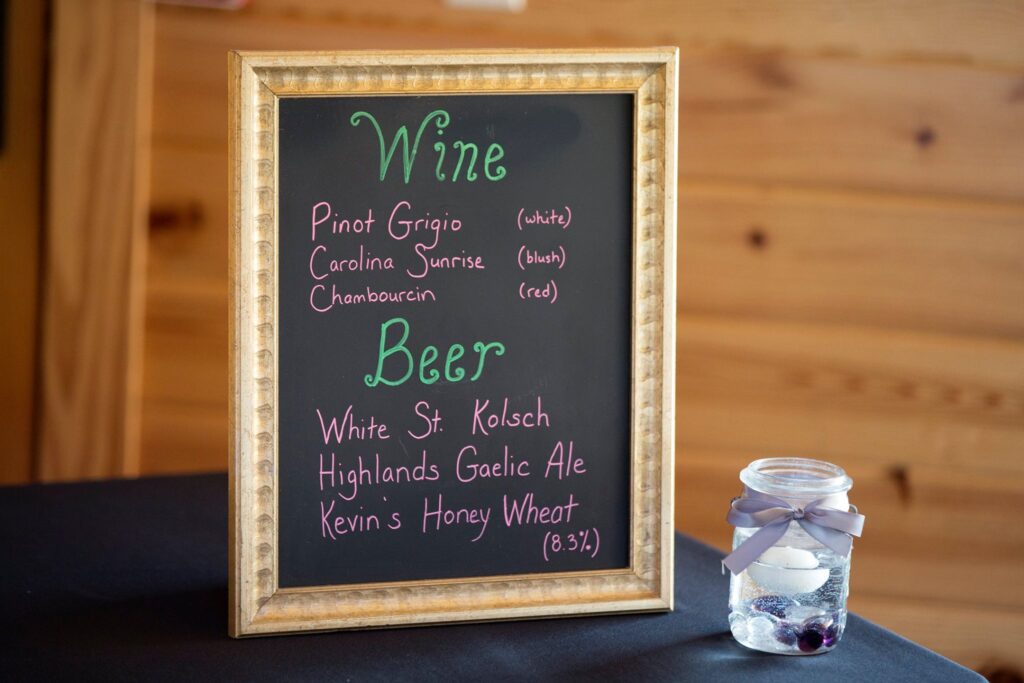 Wine
Pinot Grigio (white)
Carolina Sunrise (blush)
Chambourcin (red)
Beer
White St. Kolsch
Highlands Gaelic Ale
Kevin's Honey Wheat
(8.3%)